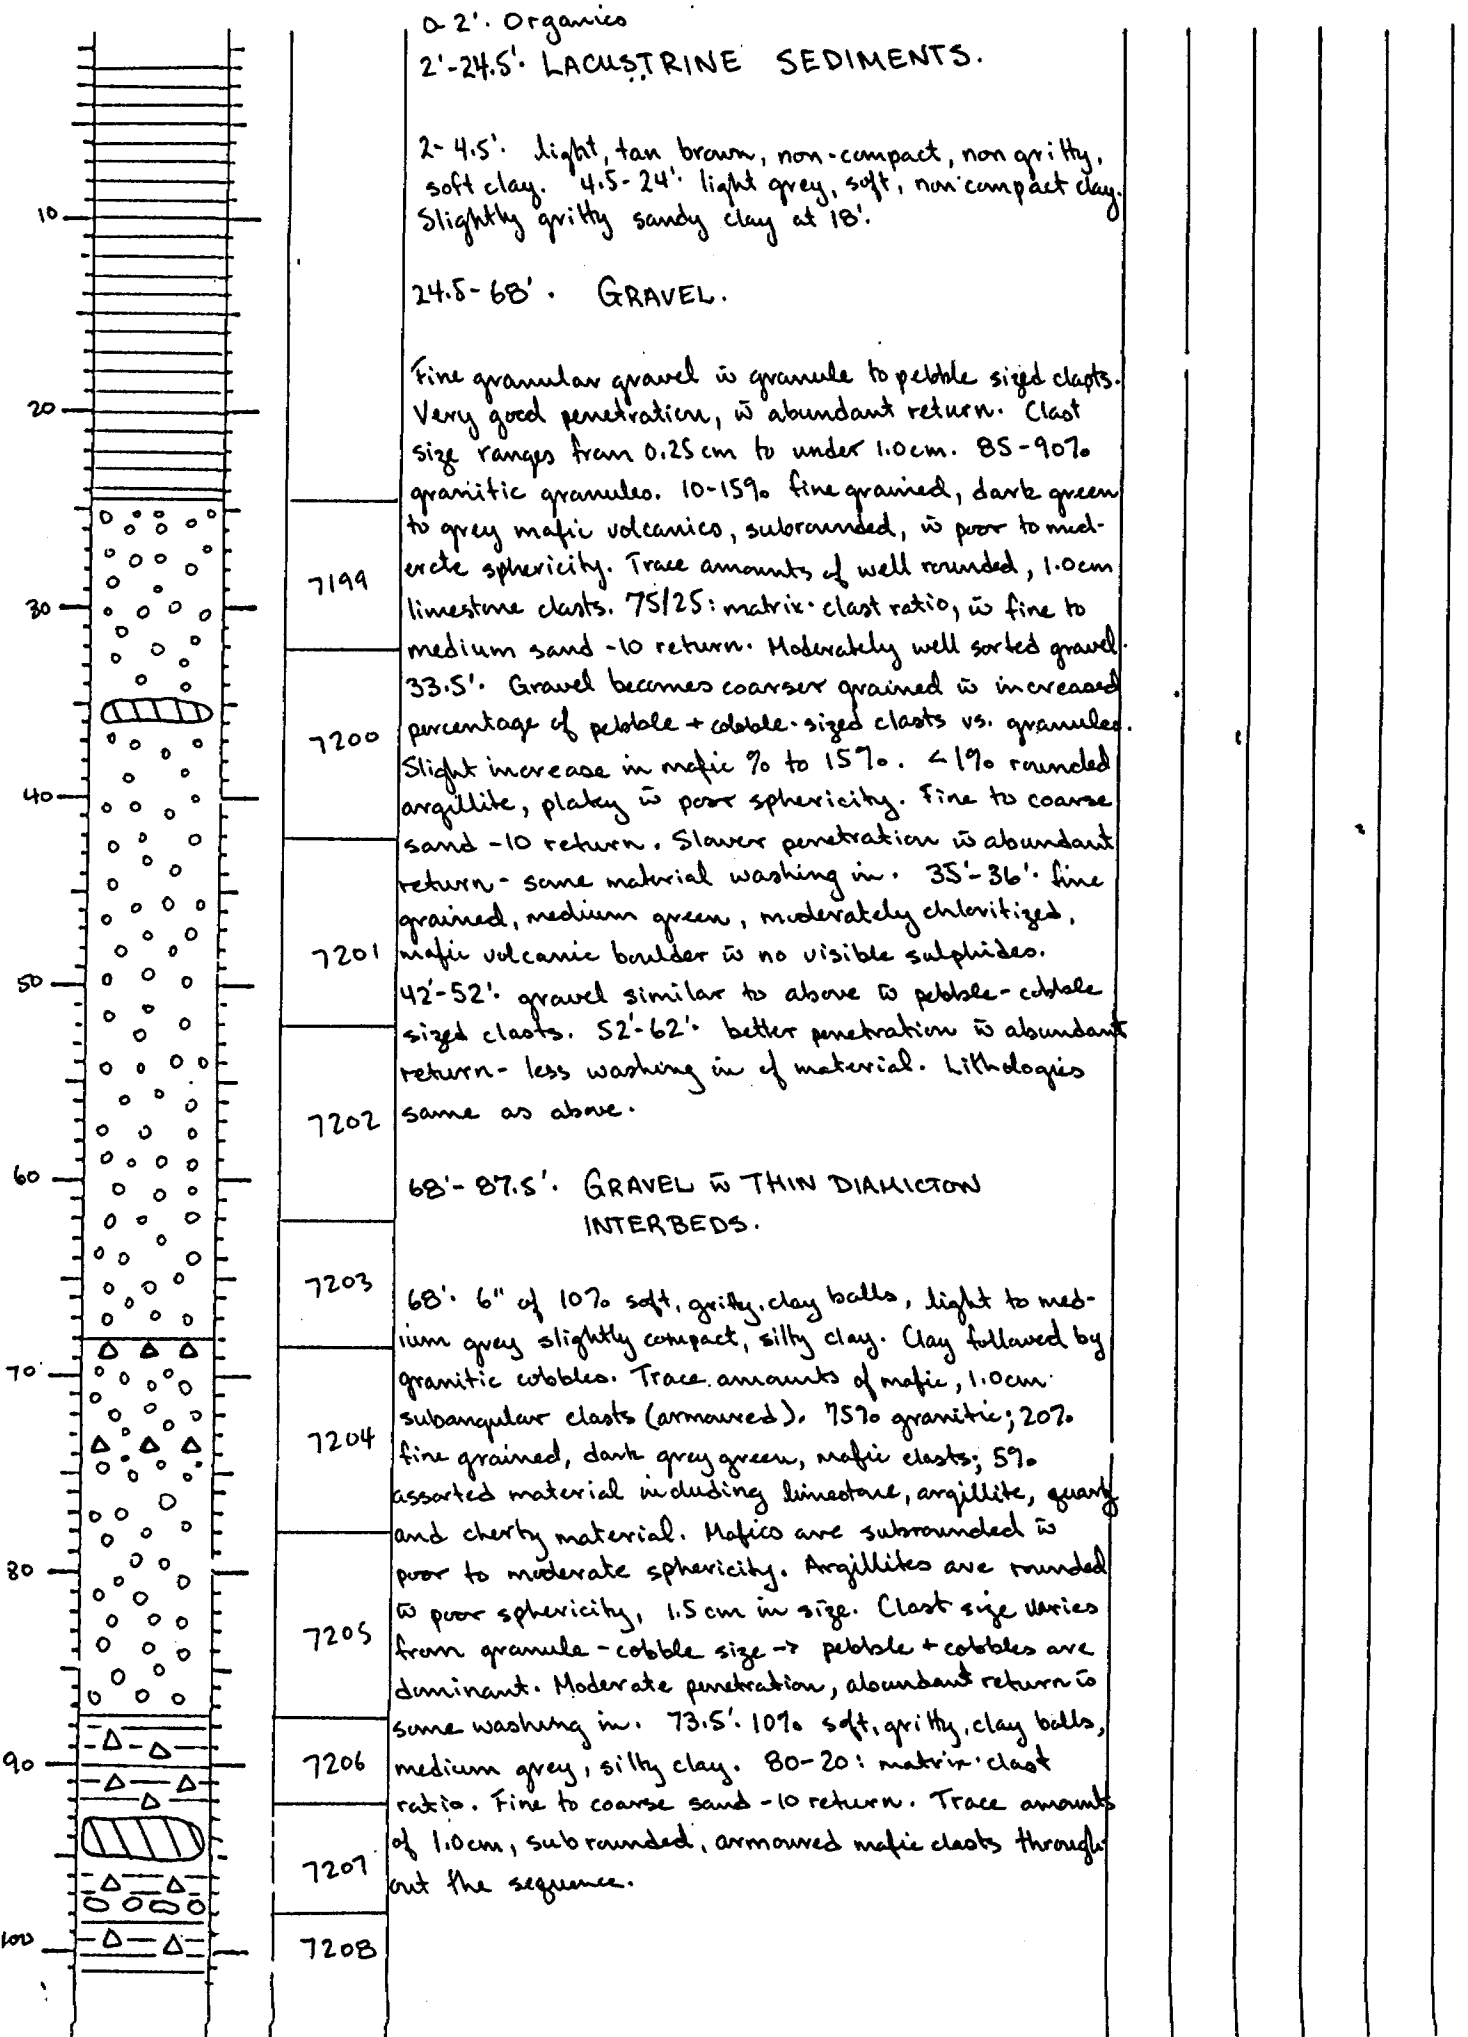 0-2'. Organics
2'-24.5'. LACUSTRINE SEDIMENTS.
2-4.5'. light, tan brown, non-compact, non gritty,
soft clay. 4.5-24'. light grey, soft, non-compact clay.
10
Slightly gritty sandy clay at 18'.
24.5-68'. GRAVEL.
Fine granular gravel w̄ granule to pebble sized clasts.
20
Very good penetration, w̄ abundant return. Clast
size ranges from 0.25 cm to under 1.0cm. 85-90%
granitic granules. 10-15% fine grained, dark green
to grey mafic volcanics, subrounded, w̄ poor to mod-
7199
erate sphericity. Trace amounts of well rounded, 1.0cm
30
limestone clasts. 75/25: matrix-clast ratio, w̄ fine to
medium sand -10 return. Moderately well sorted gravel.
33.5'. Gravel becomes coarser grained w̄ increased
7200
percentage of pebble + cobble-sized clasts vs. granules.
Slight increase in mafic % to 15%. <1% rounded
40
argillite, platey w̄ poor sphericity. Fine to coarse
sand -10 return. Slower penetration w̄ abundant
return - some material washing in. 35'-36'. fine
grained, medium green, moderately chloritized,
7201
mafic volcanic boulder w̄ no visible sulphides.
50
42'-52'. gravel similar to above w̄ pebble-cobble
sized clasts. 52'-62'. better penetration w̄ abundant
return - less washing in of material. Lithologies
7202
same as above.
60
68'-87.5'. GRAVEL w̄ THIN DIAMICTON
INTERBEDS.
7203
68'. 6" of 10% soft, gritty, clay balls, light to med-
ium grey slightly compact, silty clay. Clay followed by
70
granitic cobbles. Trace amounts of mafic, 1.0cm
subangular clasts (armoured). 75% granitic; 20%
7204
fine grained, dark grey green, mafic clasts; 5%
assorted material including limestone, argillite, quartz
and cherty material. Mafics are subrounded w̄
80
poor to moderate sphericity. Argillites are rounded
w̄ poor sphericity, 1.5 cm in size. Clast size varies
7205
from granule - cobble size -> pebble + cobbles are
dominant. Moderate penetration, abundant return w̄
some washing in. 73.5'. 10% soft, gritty, clay balls,
90
7206
medium grey, silty clay. 80-20: matrix-clast
ratio. Fine to coarse sand -10 return. Trace amounts
of 1.0cm, subrounded, armoured mafic clasts through-
7207
out the sequence.
100
7208